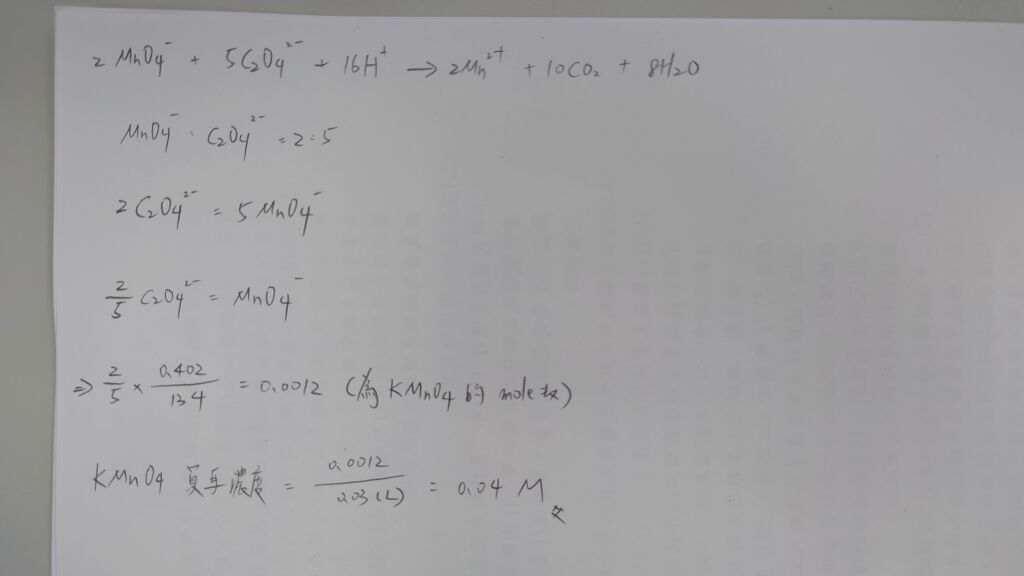 2 MnO4⁻ + 5C2O4²⁻ + 16H⁺ → 2Mn²⁺ + 10CO2 + 8H2O
MnO4⁻ : C2O4²⁻ = 2:5
2 C2O4²⁻ = 5 MnO4⁻
2/5 C2O4²⁻ = MnO4⁻
⇒ 2/5 × 0.402/134 = 0.0012 (為 KMnO4 的 mole 數)
KMnO4 莫耳濃度 = 0.0012/0.03(L) = 0.04 M